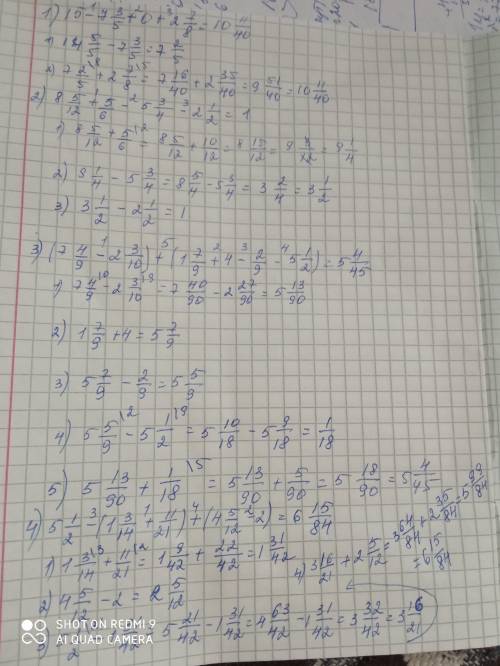 1) 15 - 7 3/5 + 0 + 2 7/8 = 10 11/40
1) 14 5/5 - 7 3/5 = 7 2/5
2) 7 2/5 \8 + 2 7/8 \5 = 7 16/40 + 2 35/40 = 9 51/40 = 10 11/40
2) 8 5/12 + 5/6 - 5 3/4 - 2 1/2 = 1
1) 8 5/12 + 5/6 \2 = 8 5/12 + 10/12 = 8 15/12 = 9 3/12 = 9 1/4
2) 9 1/4 - 5 3/4 = 8 5/4 - 5 3/4 = 3 2/4 = 3 1/2
3) 3 1/2 - 2 1/2 = 1
3) (7 4/9 - 2 3/10) + (1 7/9 + 4 - 2/9 - 5 1/2) = 5 4/45
1) 7 4/9 \10 - 2 3/10 \9 = 7 40/90 - 2 27/90 = 5 13/90
2) 1 7/9 + 4 = 5 7/9
3) 5 7/9 - 2/9 = 5 5/9
4) 5 5/9 \2 - 5 1/2 \9 = 5 10/18 - 5 9/18 = 1/18
5) 5 13/90 + 1/18 \5 = 5 13/90 + 5/90 = 5 18/90 = 5 4/45
4) 5 1/2 - (1 3/14 + 11/21) + (4 5/12 - 2) = 6 15/84
1) 1 3/14 \3 + 11/21 \2 = 1 9/42 + 22/42 = 1 31/42
4) 3 16/21 + 2 5/12 = 3 64/84 + 2 35/84 = 5 99/84 = 6 15/84
2) 4 5/12 - 2 = 2 5/12
5 21/42 - 1 31/42 = 4 63/42 - 1 31/42 = 3 32/42 = 3 16/21
SHOT ON REDMI 9
AI QUAD CAMERA